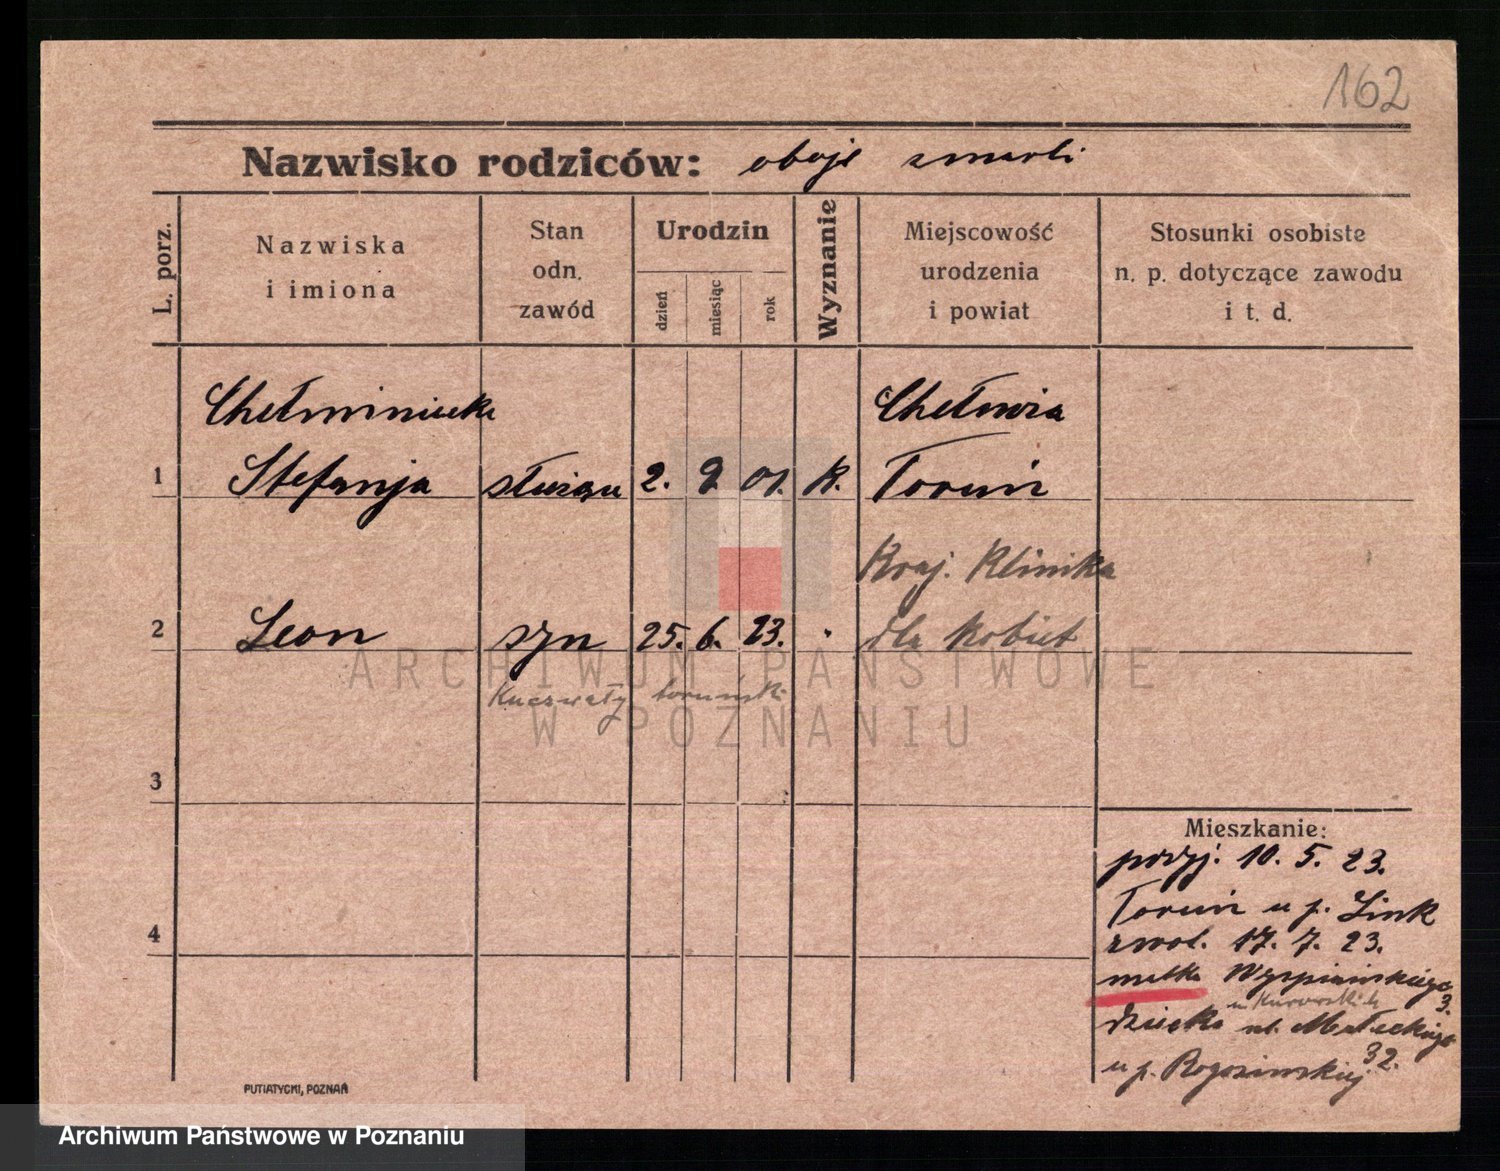 162
Nazwisko rodziców: oboje zmarli
L. porz.
Nazwiska
i imiona
Stan
odn.
zawód
Urodzin
dzień
miesiąc
rok
Wyznanie
Miejscowość
urodzenia
i powiat
Stosunki osobiste
n. p. dotyczące zawodu
i t. d.
Chełmonia
1 Stefanja służąca 2. 9. 01. R. Toruń
Kraj. Klinika
2 Leon syn 25. 6. 23. " dla kobiet
Kuczwały toruński
3
4
Mieszkanie:
przyj. 10. 5. 23.
Toruń u p. Link
zwol. 17. 7. 23.
matka Wyspiańskiego
3.
u Kurowskich
dziecko ul. Małeckiego
32.
u p. Rogozinskiej
PUTIATYCKI, POZNAŃ
ARCHIWUM PAŃSTWOWE
W POZNANIU
Archiwum Państwowe w Poznaniu